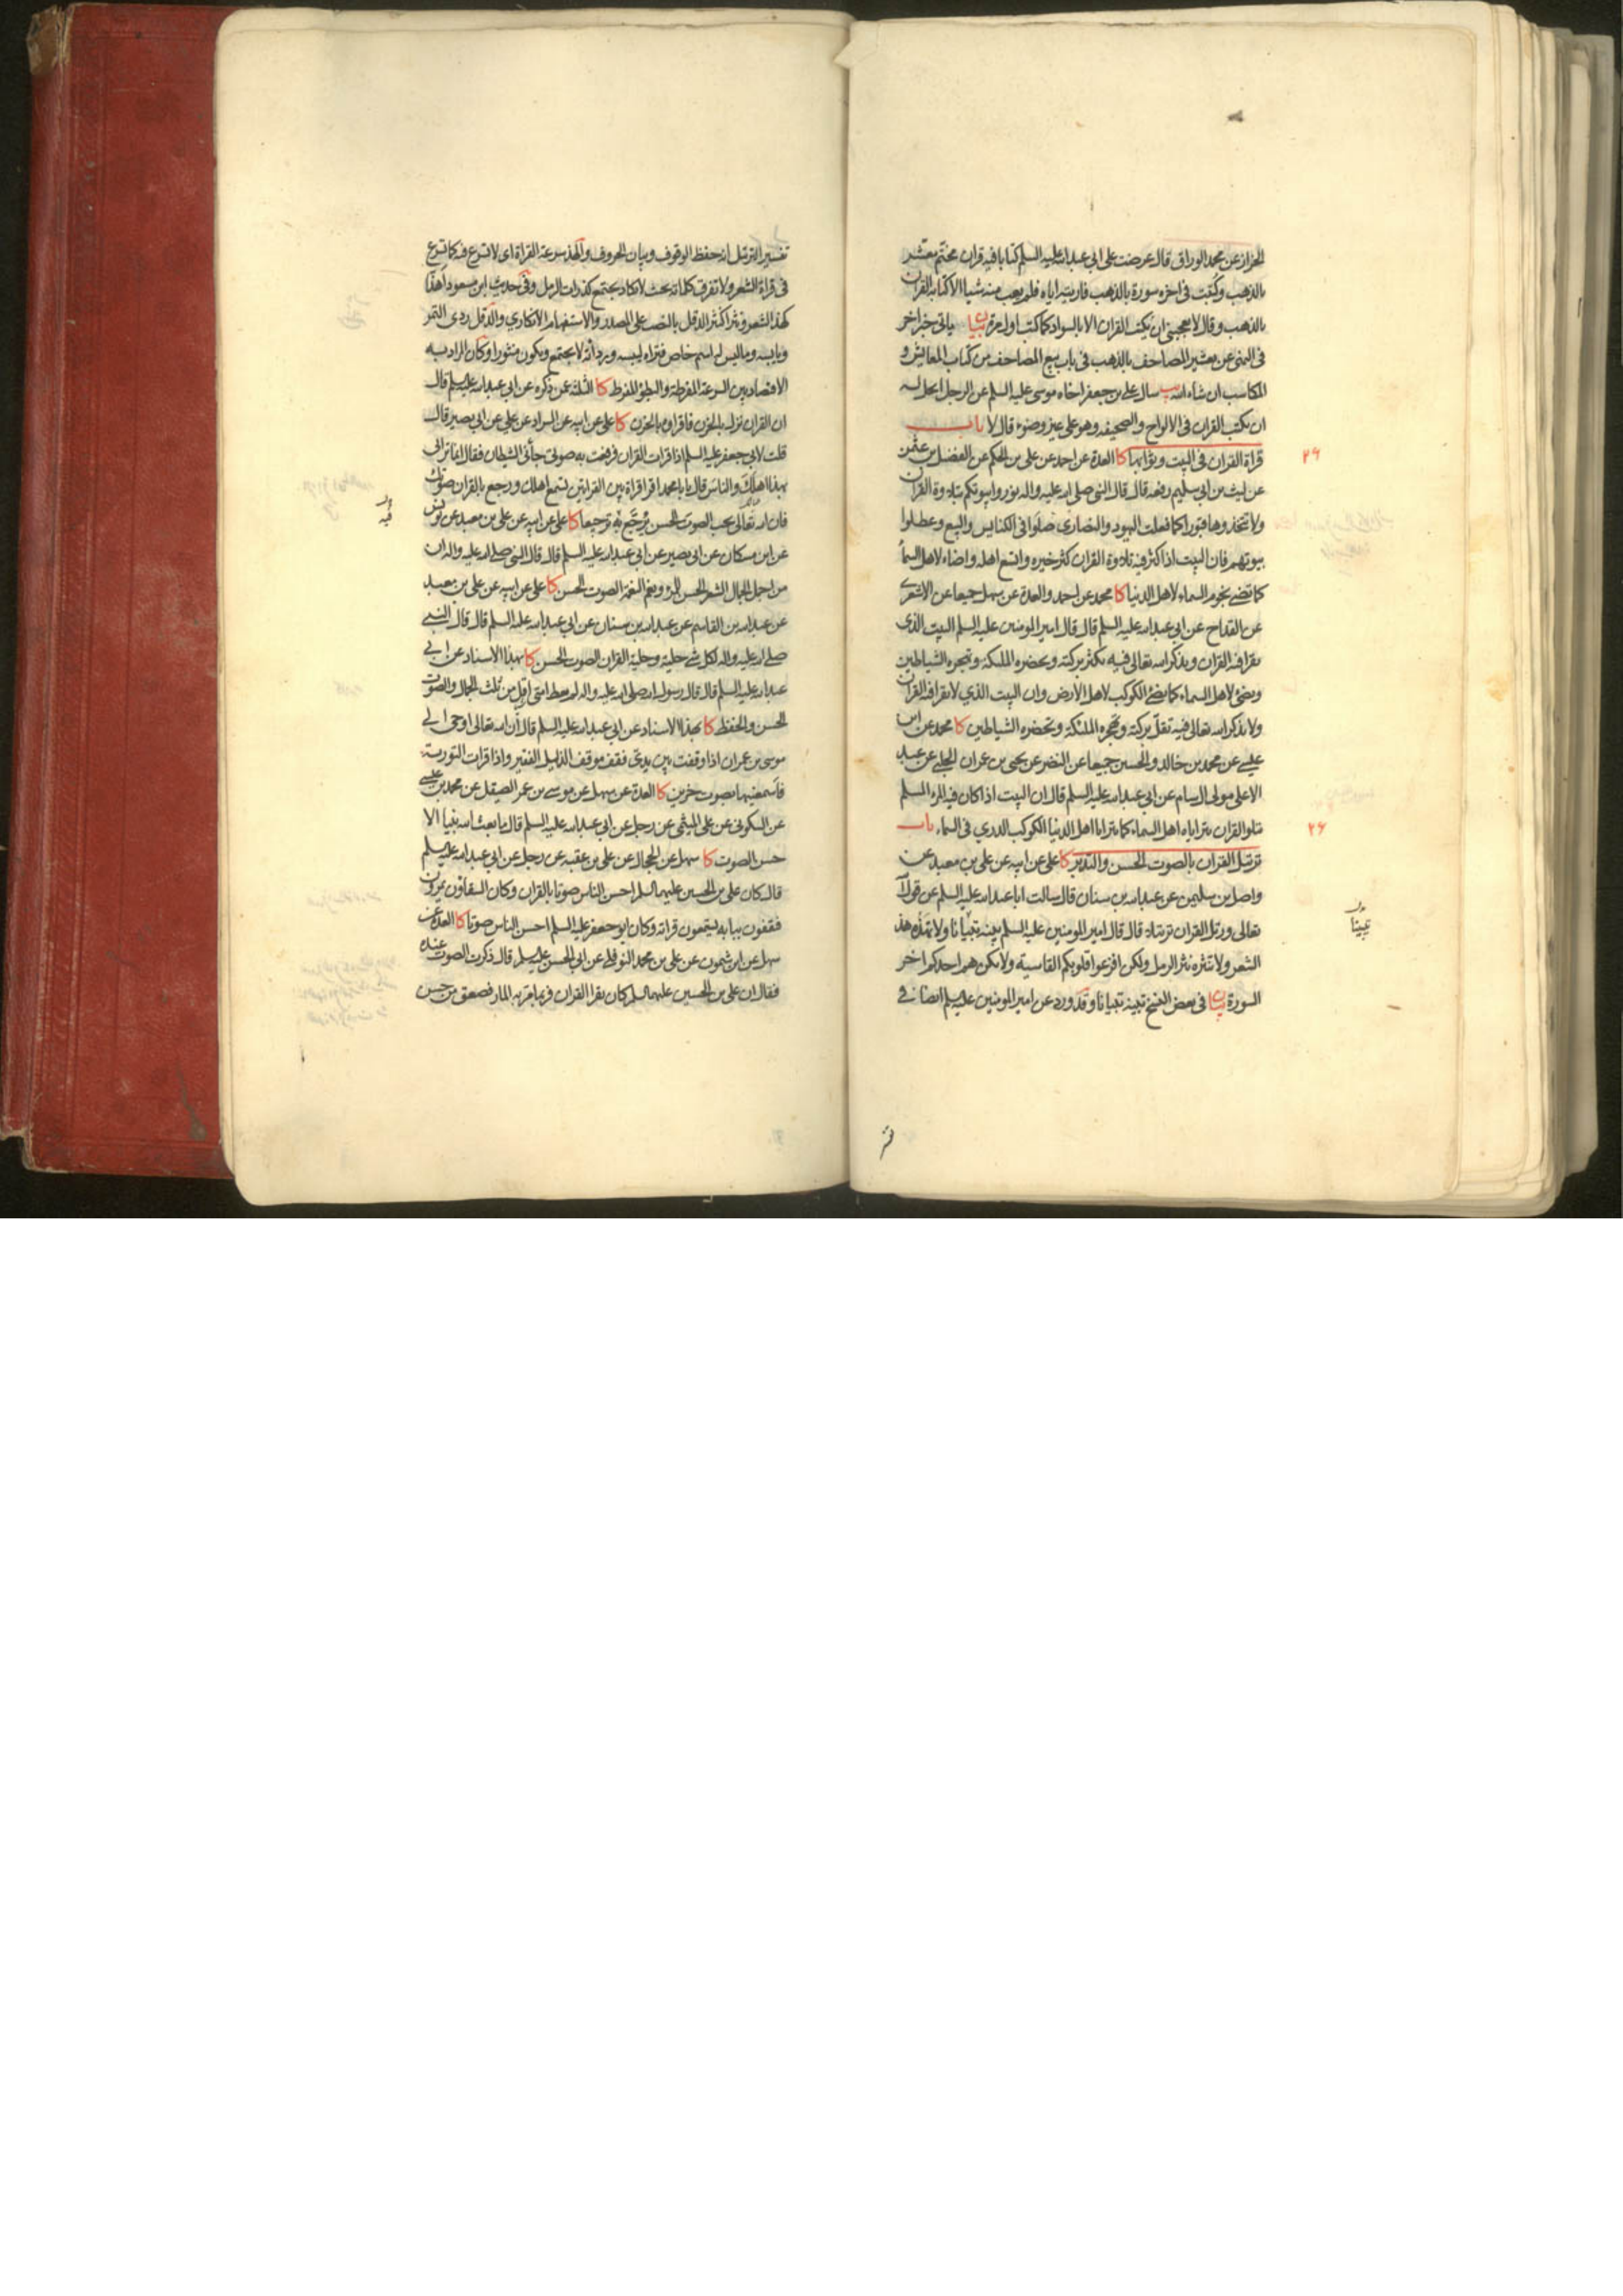 الخزاز عن محمد الوراق قال عرضت على ابي عبد الله عليه السلم كتابا فيه قران مختم معشر
بالذهب وكتبت في اخره سورة بالذهب فاريته اياه فلم يعب منه شيا الا كتابة القران
بالذهب وقال لا يعجبني ان يكتب القران الا بالسواد كما كتب اول مرة بيان ياتي خبر اخر
في النهي عن تعشير المصاحف بالذهب في باب بيع المصاحف من كتاب المعايش و
المكاسب ان شاء الله يب سال علي بن جعفر اخاه موسى عليه السلم عن الرجل ايحل له
ان يكتب القران في الالواح والصحيفه وهو على غير وضوء قال لا باب
۲۶
قراة القران في البيت وثوابها كا العدة عن احمد عن علي بن الحكم عن الفضل بن عثمن
عن ليث بن ابي سليم رفعه قال قال النبي صلى الله عليه واله نوروا بيوتكم بتلاوة القران
ولا تتخذوها قبورا كما فعلت اليهود والنصارى صلوا في الكنايس والبيع وعطلوا
بيوتهم فان البيت اذا كثر فيه تلاوة القران كثر خيره واتسع اهله واضاء لاهل السما
كما تضيء نجوم السماء لاهل الدنيا كا محمد عن احمد والعدة عن سهل جميعا عن الاشعري
عن القداح عن ابي عبد الله عليه السلم قال قال امير المومنين عليه السلم البيت الذي
يقرا فيه القران ويذكر الله تعالى فيه تكثر بركته وتحضره الملئكة وتهجره الشياطين
ويضئ لاهل السماء كما يضئ الكوكب لاهل الارض وان البيت الذي لا يقرا فيه القران
ولا يذكر الله تعالى فيه تقل بركته وتهجره الملئكة وتحضره الشياطين كا محمد عن ابن
عيسى عن محمد بن خالد والحسين جميعا عن النضر عن يحيى بن عمران الحلبي عن عبد
الاعلى مولى ال سام عن ابي عبد الله عليه السلم قال ان البيت اذا كان فيه المرء المسلم
يتلو القران يتراياه اهل السماء كما يترايا اهل الدنيا الكوكب الدري في السماء باب
۲۶
ترتيل القران بالصوت الحسن والتدبر كا علي عن ابيه عن علي بن معبد عن
واصل بن سليمن عن عبد الله بن سنان قال سالت ابا عبد الله عليه السلم عن قول الله
تعالى ورتل القران ترتيلا قال قال امير المومنين عليه السلم بينه تبيانا ولا تهذه هذ
تبيينا
الشعر ولا تنثره نثر الرمل ولكن افزعوا قلوبكم القاسية ولا يكن هم احدكم اخر
السورة بيان في بعض النسخ تبينه تبيانا وقد ورد عن امير المومنين عليه السلم ايضا في
تفسير الترتيل انه حفظ الوقوف وبيان الحروف والهذ سرعة القراة اي لا تسرع فيه كما تسرع
في قراة الشعر ولا تفرق كلماته بحيث لا تكاد يجتمع كذرات الرمل وفي حديث ابن مسعود اهذا
كهذ الشعر ونثرا كنثر الدقل بالنصب على المصدر والاستفهام الانكاري والدقل ردى التمر
ويابسه وما ليس له اسم خاص فتراه ليبسه ورداته لا يجتمع ويكون منثورا وكان المراد به
الاقتصاد بين السرعة المفرطة والبطؤ المفرط كا الثلثة عمن ذكره عن ابي عبد الله عليه السلم قال
ان القران نزل بالحزن فاقراوه بالحزن كا علي عن ابيه عن السراد عن علي عن ابي بصير قال
قلت لابي جعفر عليه السلم اذا قرات القران فرفعت به صوتي جائني الشيطان فقال انما ترائي
بهذا اهلك والناس قال يابا محمد اقرا قراة بين القراتين تسمع اهلك ورجع بالقران صوتك
فيه
فان الله تعالى يحب الصوت الحسن يرجع به ترجيعا كا علي عن ابيه عن علي بن معبد عن يونس
عن ابن مسكان عن ابي بصير عن ابي عبد الله عليه السلم قال قال النبي صلى الله عليه واله ان
من اجمل الجمال الشعر الحسن ونغم النغمة الصوت الحسن كا علي عن ابيه عن علي بن معبد
عن عبد الله بن القاسم عن عبد الله بن سنان عن ابي عبد الله عليه السلم قال قال النبي
صلى الله عليه واله لكل شئ حلية وحلية القران الصوت الحسن كا بهذا الاسناد عن ابي
عبد الله عليه السلم قال قال رسول الله صلى الله عليه واله لم يعط امتي اقل من ثلث الجمال والصوت
الحسن والحفظ كا بهذا الاسناد عن ابي عبد الله عليه السلم قال ان الله تعالى اوحى الى
موسى بن عمران اذا وقفت بين يدي فقف موقف الذليل الفقير واذا قرات التورية
فاسمعنيها بصوت حزين كا العدة عن سهل عن موسى بن عمر الصيقل عن محمد بن عيسى
عن السكوني عن علي الميثمي عن رجل عن ابي عبد الله عليه السلم قال ما بعث الله نبيا الا
حسن الصوت كا سهل عن الحجال عن علي بن عقبه عن رجل عن ابي عبد الله عليه السلم
قال كان علي بن الحسين عليهما السلم احسن الناس صوتا بالقران وكان السقاؤن يمرون
فيقفون ببابه يستمعون قراته وكان ابو جعفر عليه السلم احسن الناس صوتا كا العدة عن
سهل عن ابن شمون عن علي بن محمد النوفلي عن ابي الحسن عليه السلم قال ذكرت الصوت عنده
فقال ان علي بن الحسين عليهما السلم كان يقرا القران فربما مر به المار فصعق من حسن